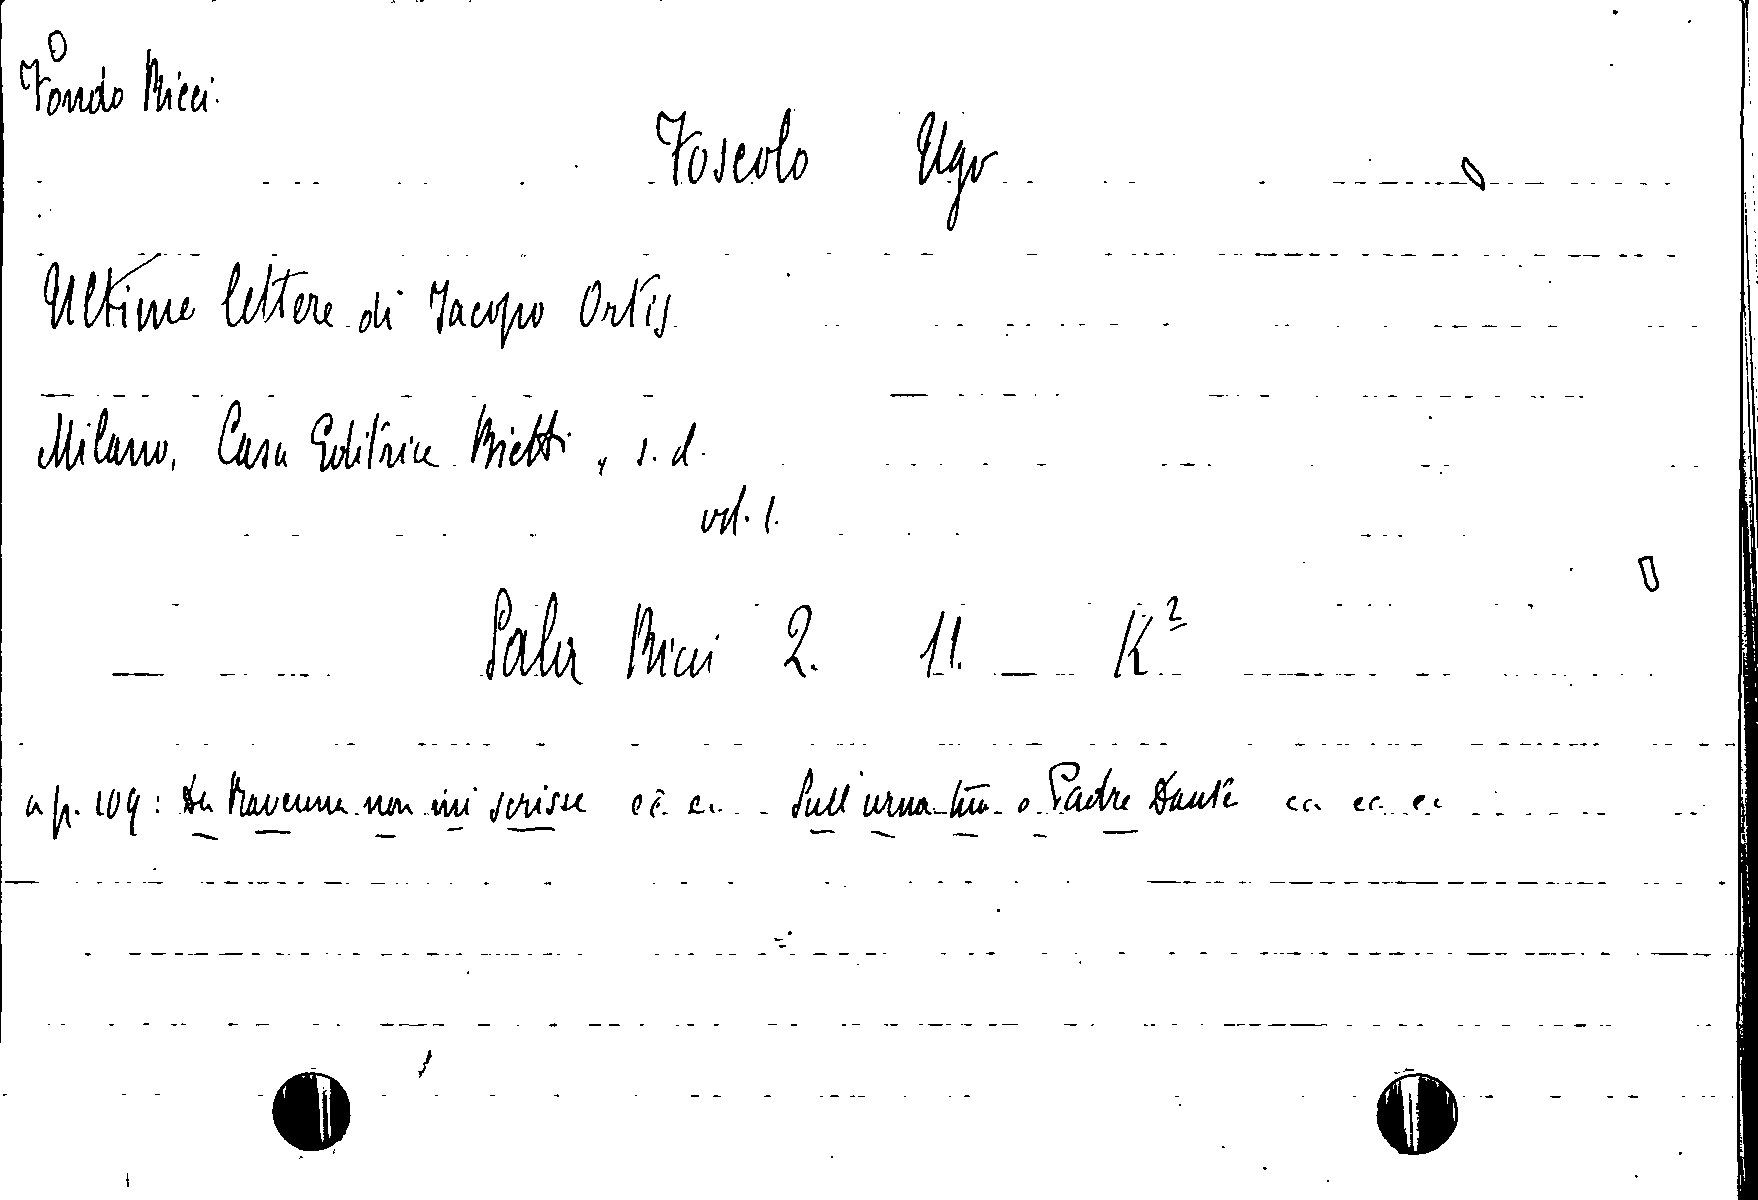 Fondo Ricci.
Foscolo Ugo
Ultime lettere di Jacopo Ortis
Milano, Casa Editrice Bietti, s. d.
vol. 1.
Sala Ricci 2. 11. K²
a p. 109: Da Ravenna non mi scrisse ec. ec. Sull'urna tua o Padre Dante ec. ec. ec